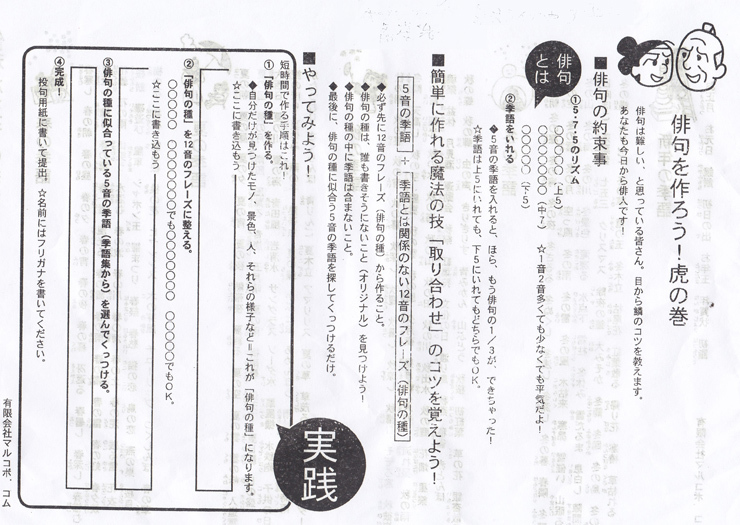 俳句を作ろう！虎の巻
俳句は難しい、と思っている皆さん。目から鱗のコツを教えます。
あなたも今日から俳人です！
俳句とは
■俳句の約束事
①5・7・5のリズム
○○○○○（上5）
○○○○○○○（中7）　☆1音2音多くても少なくても平気だよ！
○○○○○（下5）
②季語をいれる
◆5音の季語を入れると、ほら、もう俳句の1／3が、できちゃった！
☆季語は上5にいれても、下5にいれてもどちらでもOK。
■簡単に作れる魔法の技「取り合わせ」のコツを覚えよう！
5音の季語　＋　季語とは関係のない12音のフレーズ（俳句の種）
◆必ず先に12音のフレーズ（俳句の種）から作ること。
◆俳句の種は、誰も書きそうにないこと（オリジナル）を見つけよう！
◆俳句の種の中に季語は含まないこと。
◆最後に、俳句の種に似合う5音の季語を探してくっつけるだけ。
■やってみよう！
実践
短時間で作る手順はこれ！
①「俳句の種」を作る。
◆自分だけが見つけたモノ、景色、人、それらの様子など＝これが「俳句の種」になります。
☆ここに書き込もう
②「俳句の種」を12音のフレーズに整える。
○○○○○　○○○○○○○でも○○○○○○○　○○○○○でもOK。
☆ここに書き込もう
③俳句の種に似合っている5音の季語（季語集から）を選んでくっつける。
④完成！
投句用紙に書いて提出。☆名前にはフリガナを書いてください。
有限会社マルコボ．コム